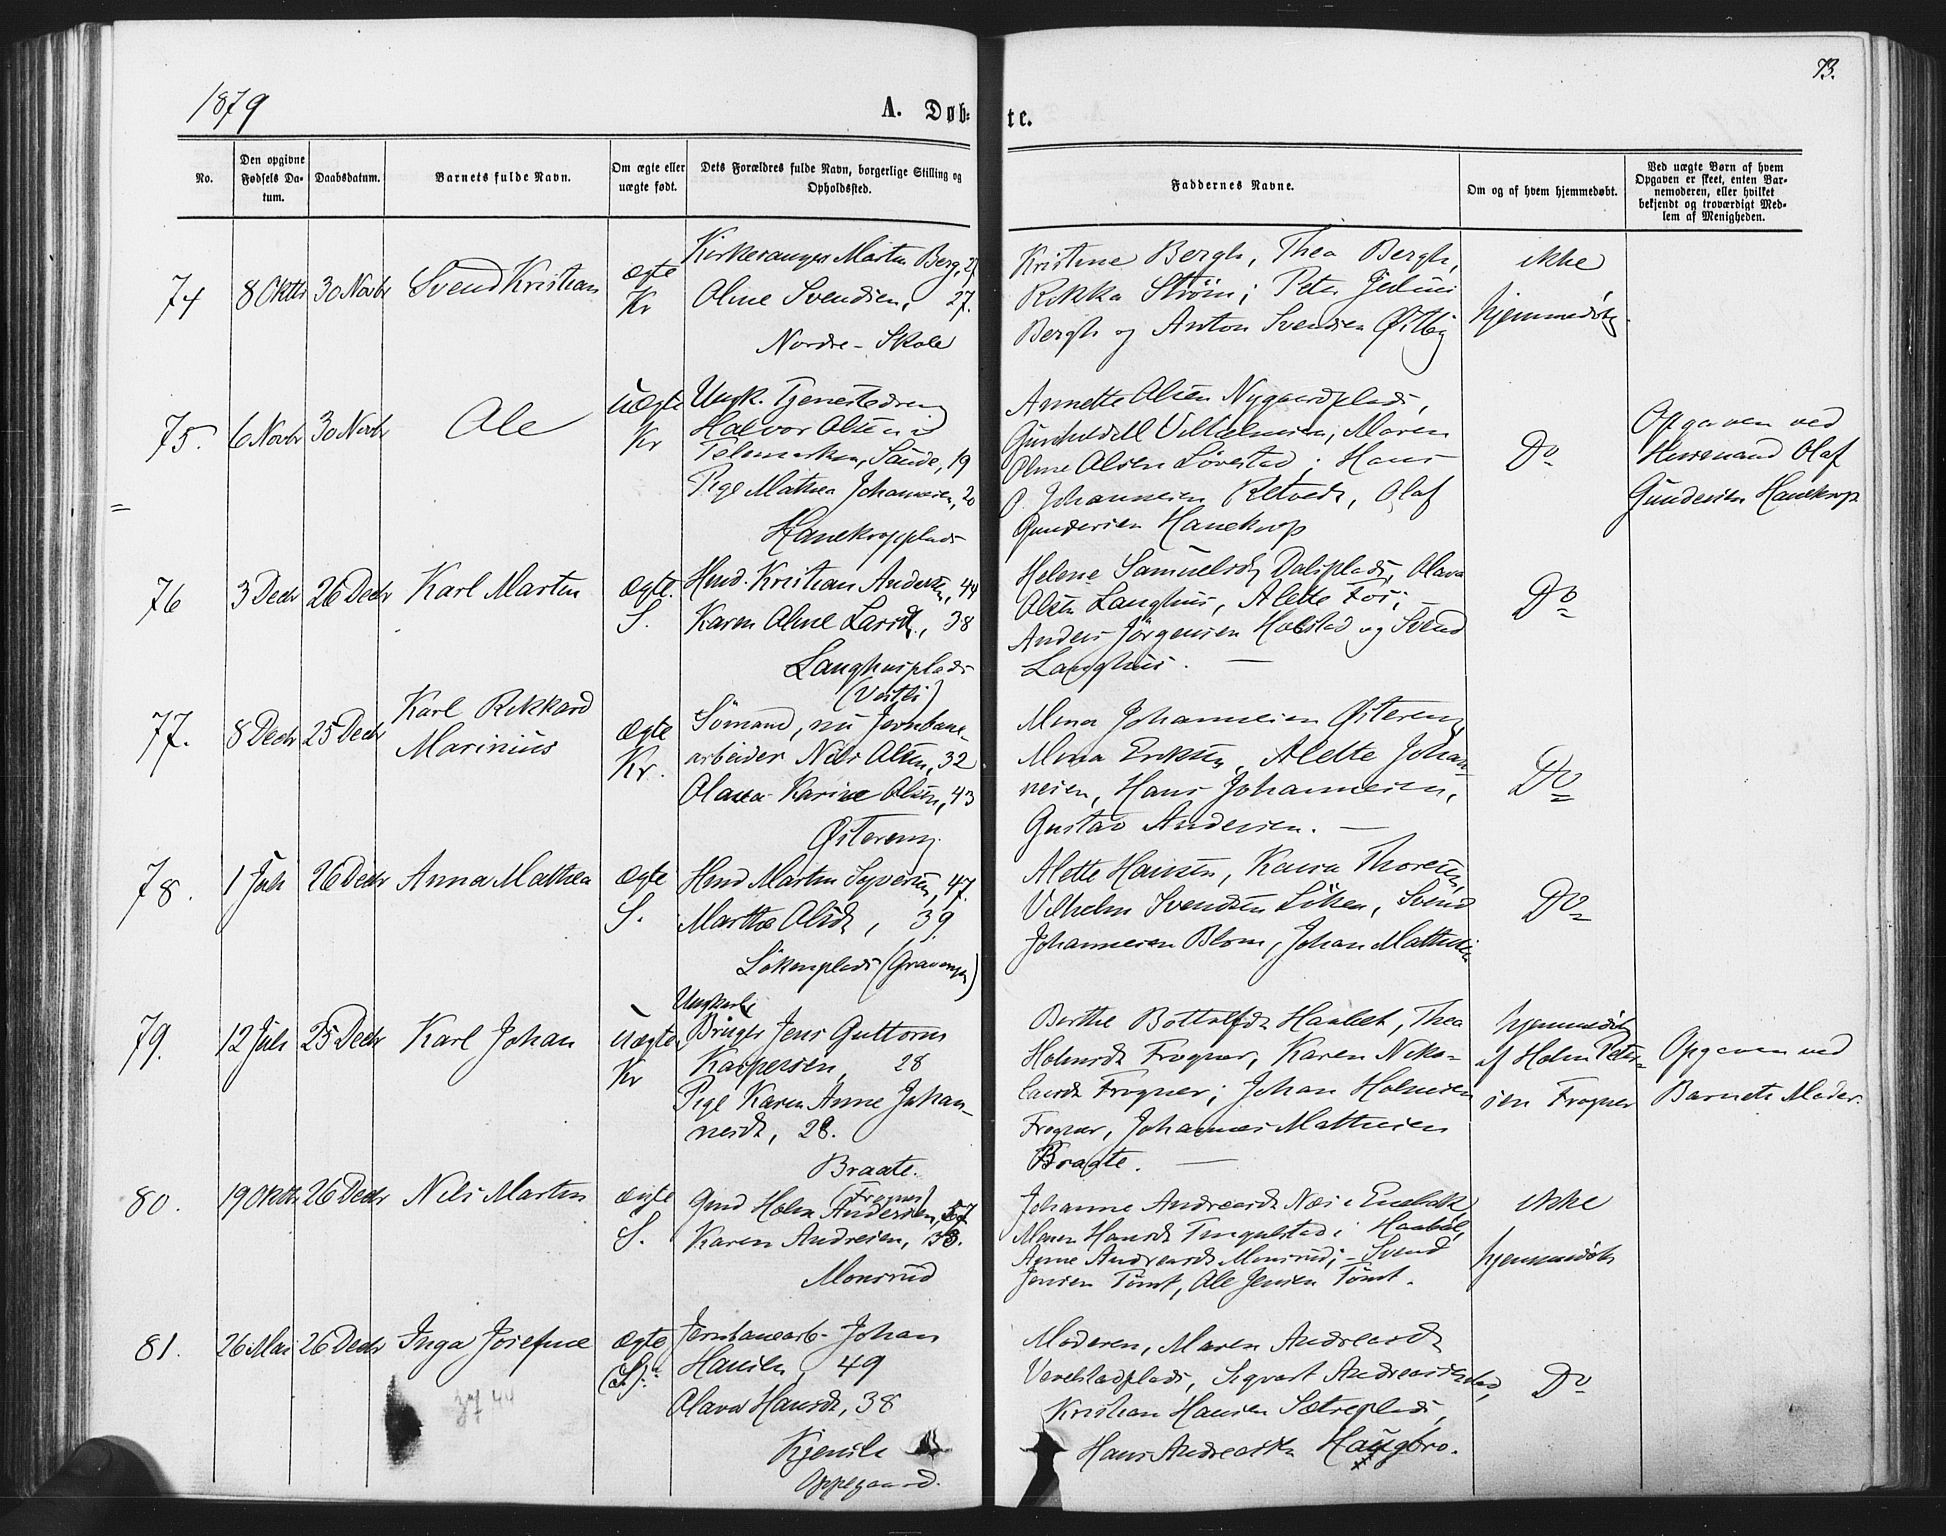 1879
A. Døb-
te.
73.
No.
Den opgivne
Fødsels Da-
tum.
Daabsdatum.
Barnets fulde Navn.
Om ægte eller
uægte født.
Dets Forældres fulde Navn, borgerlige Stilling og
Opholdssted.
Faddernes Navne.
Om og af hvem hjemmedøbt.
Ved uægte Børn af hvem
Opgaven er skeet, enten Bar-
nemoderen, eller hvilket
bekjendt og troværdigt Med-
lem af Menigheden.
74
8 Oktbr
30 Novbr
Svend Kristian
ægte
Kr
Kirkesanger Martin Berg,
Oline Svendsen, 27.
Nordre-Skole
Kristine Bergh, Thea Bergh,
Rikka Strøm; Peter Julius
Bergh og Anton Svendsen Østby
ikke
hjemmedøbt.
75.
6 Novbr
30 Novbr
Ole
uægte
Kr
Ungk. Tjenestedreng
Halvor Olsen
Telemarken, Saude, 19
Pige Mathea Johannesen, 20
Hanekropplads
Annette Olsen Nygaardplads,
Vilhelmsen, Maren
Oline Olsen Løvestad; Hans
P. Johannesen Retvedt, Olaf
Gundersen Hanekrop
Do
Opgaven ved
Husmand Olaf
Gundersen Hanekrop
76
3 Decbr
26 Decbr
Karl Martin
ægte.
S.
Husd. Kristian Andersen, 44
Karen Oline Larsdt., 38
Langhusplads
(Vestli)
Helene Samuelsdt Dalsplads, Olava
Olsen Langhus, Alette Fos;
Anders Jørgensen Holstad og Svend
Langhus. —
Do
77.
8 Decbr
25 Decbr
Karl Rikkard
Marinius
ægte
Kr.
Sømand, nu Jernbane-
arbeider Nils Olsen, 32
Olava Karine Olsen, 43
Østereng
Mina Johannesen Østereng
Mina Eriksen, Alette Johan-
nesen, Hans Johannesen,
Gustav Andersen. —
Do
78.
1 Juli
26 Decbr
Anna Mathea
ægte
S.
Husd Martin Syversen, 47.
Marthe Olsdt, 39.
Løkenplads
Alette Hansen, Kaisa Thoresen,
Vilhelm Svendsen Løken, Svend
Johannesen Blom, Johan Mathisen
Do
79.
12 Juli
25 Decbr
Karl Johan
uægte
Kr
Ungkarl
Jens Guttorm
Kaspersen, 28
Pige Karen Anne Johan-
nesdt, 28.
Braate.
(Frogner)
Berthe Bottolfsdt Haabet, Thea
Holmsdt Frogner, Karen Niko-
laisdt Frogner; Johan Holmsen
Frogner, Johannes Mathiesen
Braate. —
hjemmedøbt
af Holm Peter-
sen Frogner
Opgaven ved
Barnets Moder.
80.
19 Oktbr
26 Decbr
Nils Martin
ægte
S.
Gmd Holm Andersen, 57
Karen Andresen, 38.
Monsrud
Johanne Andreasdt Næs i Enebak
Maren Hansdt Tingulstad i Haabøl,
Anne Andreasdt Monsrud; – Svend
Jensen Tømt, Ole Jensen Tømt.
ikke
hjemmedøbt
81.
26 Mai
26 Decbr
Inga Josefine
ægte
(S).
Jernbanearb. Johan
Hansen, 49
Olava Hansdt, 38
Oppegaard.
Moderen, Maren Andreasdt
Vevelstadplads, Sigvart Andreassen
Kristian Hansen Sætreplads,
Hans Andreassen Haugbro.
Do